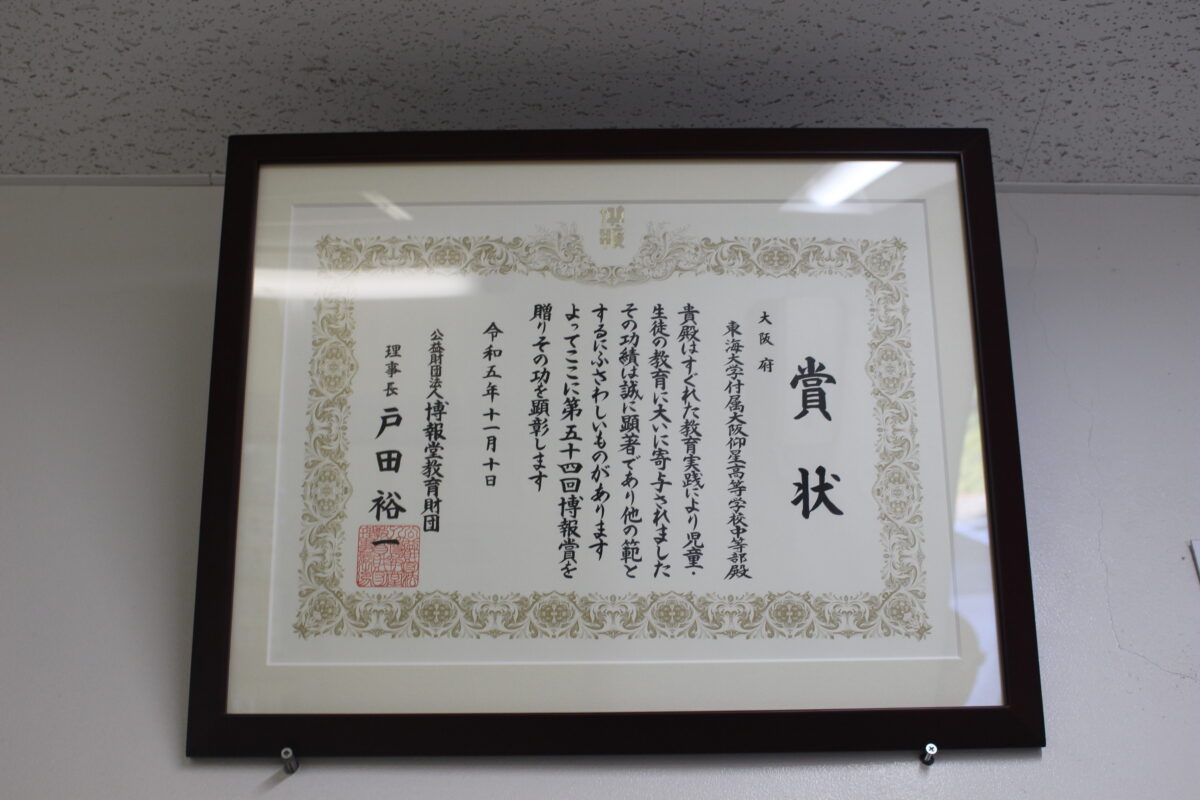 賞状
大阪府
東海大学付属大阪仰星高等学校中等部殿
貴殿はすぐれた教育実践により児童・
生徒の教育に大いに寄与されました
その功績は誠に顕著であり他の範と
するにふさわしいものがあります
よってここに第五十四回博報賞を
贈りその功を顕彰します
令和五年十一月十日
公益財団法人博報堂教育財団
理事長戸田裕一